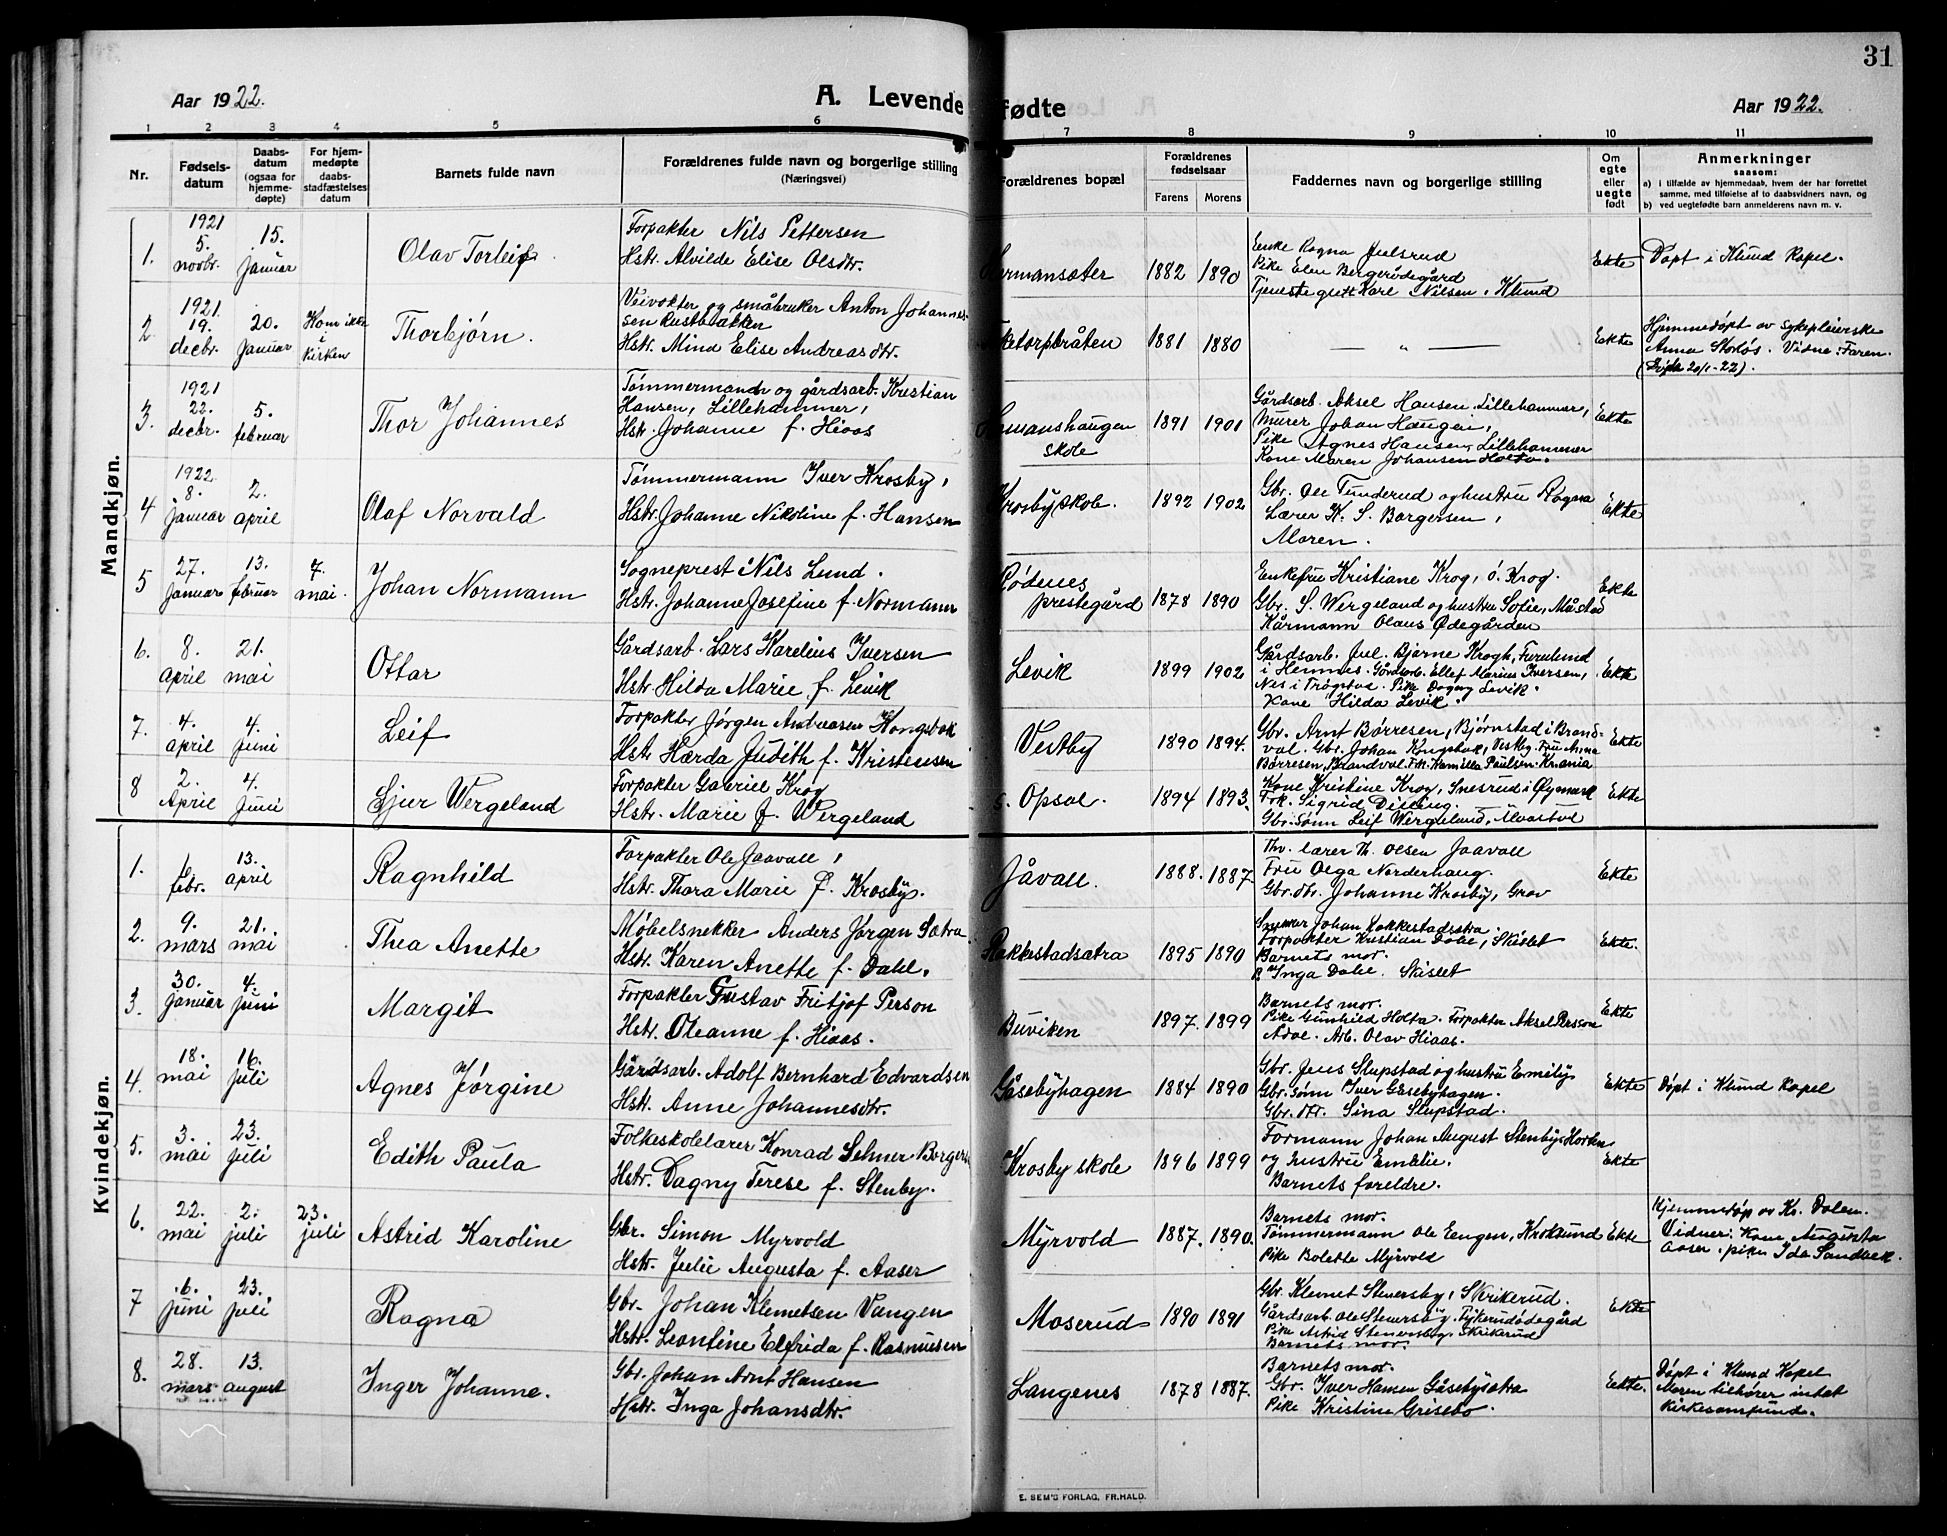 31
Aar 1922.
A. Levende fødte
Aar 1922.
1 2 3 4 5 6 7 8 9 10 11
Nr.
Fødsels-
datum
Daabs-
datum
(ogsaa for
hjemme-
døpte)
For hjem-
medøpte
daabs-
stadfæstelses
datum
Barnets fulde navn
Forældrenes fulde navn og borgerlige stilling
(Næringsvei)
Forældrenes bopæl
Forældrenes
fødselsaar
Farens Morens
Faddernes navn og borgerlige stilling
Om
egte
eller
uegte
født
Anmerkninger
saasom:
a) i tilfælde av hjemmedaab, hvem der har forrettet
samme, med tilføielse af to daabsvidners navn, og
b) ved uegtefødte barn anmelderens navn m. v.
Mandkjøn.
1.
1921
5.
novbr.
15.
januar
Olav Torleif
Forpakter Nils Pettersen
Hstr. Alvilde Elise Olsdtr.
Hermansæter
1882 1890
Enke Ragna Julsrud
Pike Elen Bergerødegård
Tjenestegutt Karl Nilsen, Klund
Ekte
Døpt i Klund Kapel.
2.
1921
19.
decbr.
20.
januar
Kom ikke
i
kirken
Thorbjørn.
Veivokter og småbruker Anton Johannes-
sen Rustbakken
Hstr. Mina Elise Andreasdtr.
Eketorpbråten
1881 1880
— „ —
Ekte
Hjemmedøpt av sykepleierske
Anna Storløs. Vidne: Faren.
20/1-22).
3.
1921
22.
decbr.
5.
februar
Thor Johannes
Tømmermand og gårdsarb. Kristian
Hansen, Lillehammer,
Hstr. Johanne f. Hiaas
skole
1891 1901
Gårdsarb. Aksel Hansen, Lillehammer,
Murer Johan Haugen,
Pike Agnes Hansen, Lillehammer
Kone Maren Johansen Holta.
Ekte
4
1922
8.
januar
2.
april
Olaf Norvald
Tømmermann Iver Krosby,
Hstr. Johanne Nikoline f. Hansen
Krosby skole.
1892 1902
Gbr. Ole Tunderud og hustru Ragna
Lærer K. S. Borgersen,
Moren.
Ekte
5
27.
januar
13.
februar
7.
mai.
Johan Normann
Sogneprest Nils Lund.
Hstr. Johanne Josefine f. Normann
Rødenes
prestegård
1878 1890
Enkefru Kristiane Krog, ö. Krog.
Gbr. S. Wergeland og hustru Sofie, Måstad
Kårmann Olaus Ødegården
Ekte
6.
8.
april
21.
mai
Ottar
Gårdsarb. Lars Karelius Iversen
Hstr. Hilda Marie f. Levik
Levik
1899 1902
Gårdsarb. Jul. Bjarne Krogh, Furulund
i Hemnes. Gårdsarb. Ellef Marius Iversen,
Nes i Trøgstad. Pike Dagny Levik.
Kone Hilda Levik.
Ekte
7.
4.
april
4.
juni
Leif
Forpakter Jørgen Andreasen Kongsbak
Hstr. Hærda Judith f. Kristensen
Vestby
1890 1894.
Gbr. Arnt Børresen, Bjørnstad i Brand-
val. Gbr. Johan Kongsbak, Vestby. Fru Anna
Børresen, Brandval. Frk. Kamilla Paulsen. Kr.ania
Ekte
8
2.
April
4.
juni
Sjur Wergeland
Forpakter Gabriel Krog
Hstr. Marie f. Wergeland
s. Opsal.
1894 1893.
Kone Kristine Krog, Snesrud i Øymark
Frk. Sigrid
Gbr.sønn Leif Wergeland,
Ekte
Kvindekjøn.
1.
6
febr.
13.
april
Ragnhild
Forpakter Ole Jaavall,
Hstr. Thora Marie f. Krosby.
Jåvall.
1888. 1887.
Thv. lærer Th. Olsen Jaavall
Fru Olga Norderhaug.
Gbr.dtr. Johanne Krosby, Grav
Ekte
2.
9.
mars
21.
mai
Thea Anette
Møbelsnekker Anders Jørgen Sætra
Hstr. Karen Anette f. Dahl.
Rakkestadsætra
1895 1890
Johan Rakkestadsætra.
Forpakter Kristian Dalie, Skislet
Barnets mor.
P. Inga Dalie, Skislet
Ekte.
3.
30.
januar
4.
juni
Margit
Forpakter Gustav Fritjof Person
Hstr. Oleanne f. Hiaas.
Buviken
1897. 1899
Barnets mor.
Pike Gunhild Holta. Forpakter Aksel Persson
Arb. Olav Hiaas.
Ekte
4.
18.
mai
16.
juli
Agnes Jørgine
Gårdsarb. Adolf Bernhard Edvardsen
Hstr. Anne Johannesdtr.
Gåsebyhagen
1884 1890
Gbr. Jens Slupstad og hustru Ermily
Gbr.sønn Iver Gåsebyhagen.
Gbr.dtr. Sina Slupstad.
Ekte
Døpt i Klund Kapel
5.
3.
mai
23.
juli
Edith Paula
Folkeskolelærer Konrad Selmer Borgers
Hstr. Dagny Terese f. Stenby.
Krosby skole
1896 1899
Formann Johan August Stenby, Horten
og hustru Emilie.
Barnets foreldre.
Ekte
6.
22.
mai
2.
juli
23.
juli
Astrid Karoline
Gbr. Simon Myrvold
Hstr. Julie Augusta f. Aaser
Myrvold
1887. 1890.
Barnets mor.
Tømmermann Ole Engen, Kroksund
Pike Bolette Myrvold
Ekte
Hjemmedøp av Kr. Dalen.
Vidner: Kone Augusta
Aaser, pike Ida Sandbek.
7
6.
juni
23.
juli
Ragna
Gbr. Johan Klemetsen Vangen
Hstr. Leontine Elfrida f. Rasmussen
Moserud
1890 1891
Gbr. Klemet Stenersby, Skrikerud.
Gårdsarb. Ole Stenersby,
Pike Astrid Stenersby, Skrikerud
Barnets mor.
Ekte
8.
28.
mars
13.
august
Inger Johanne.
Gbr. Johan Arnt Hansen
Hstr. Inga Johansdtr.
Langenes
1878 1887.
Barnets mor.
Gbr. Iver Hansen Gåsebysætra
Pike Kristine Grisebo.
Eekte.
Døpt i Klund Kapel
Moren tilhører intet
kirkesamfund.
E. SEM'S FORLAG, FR.HALD.